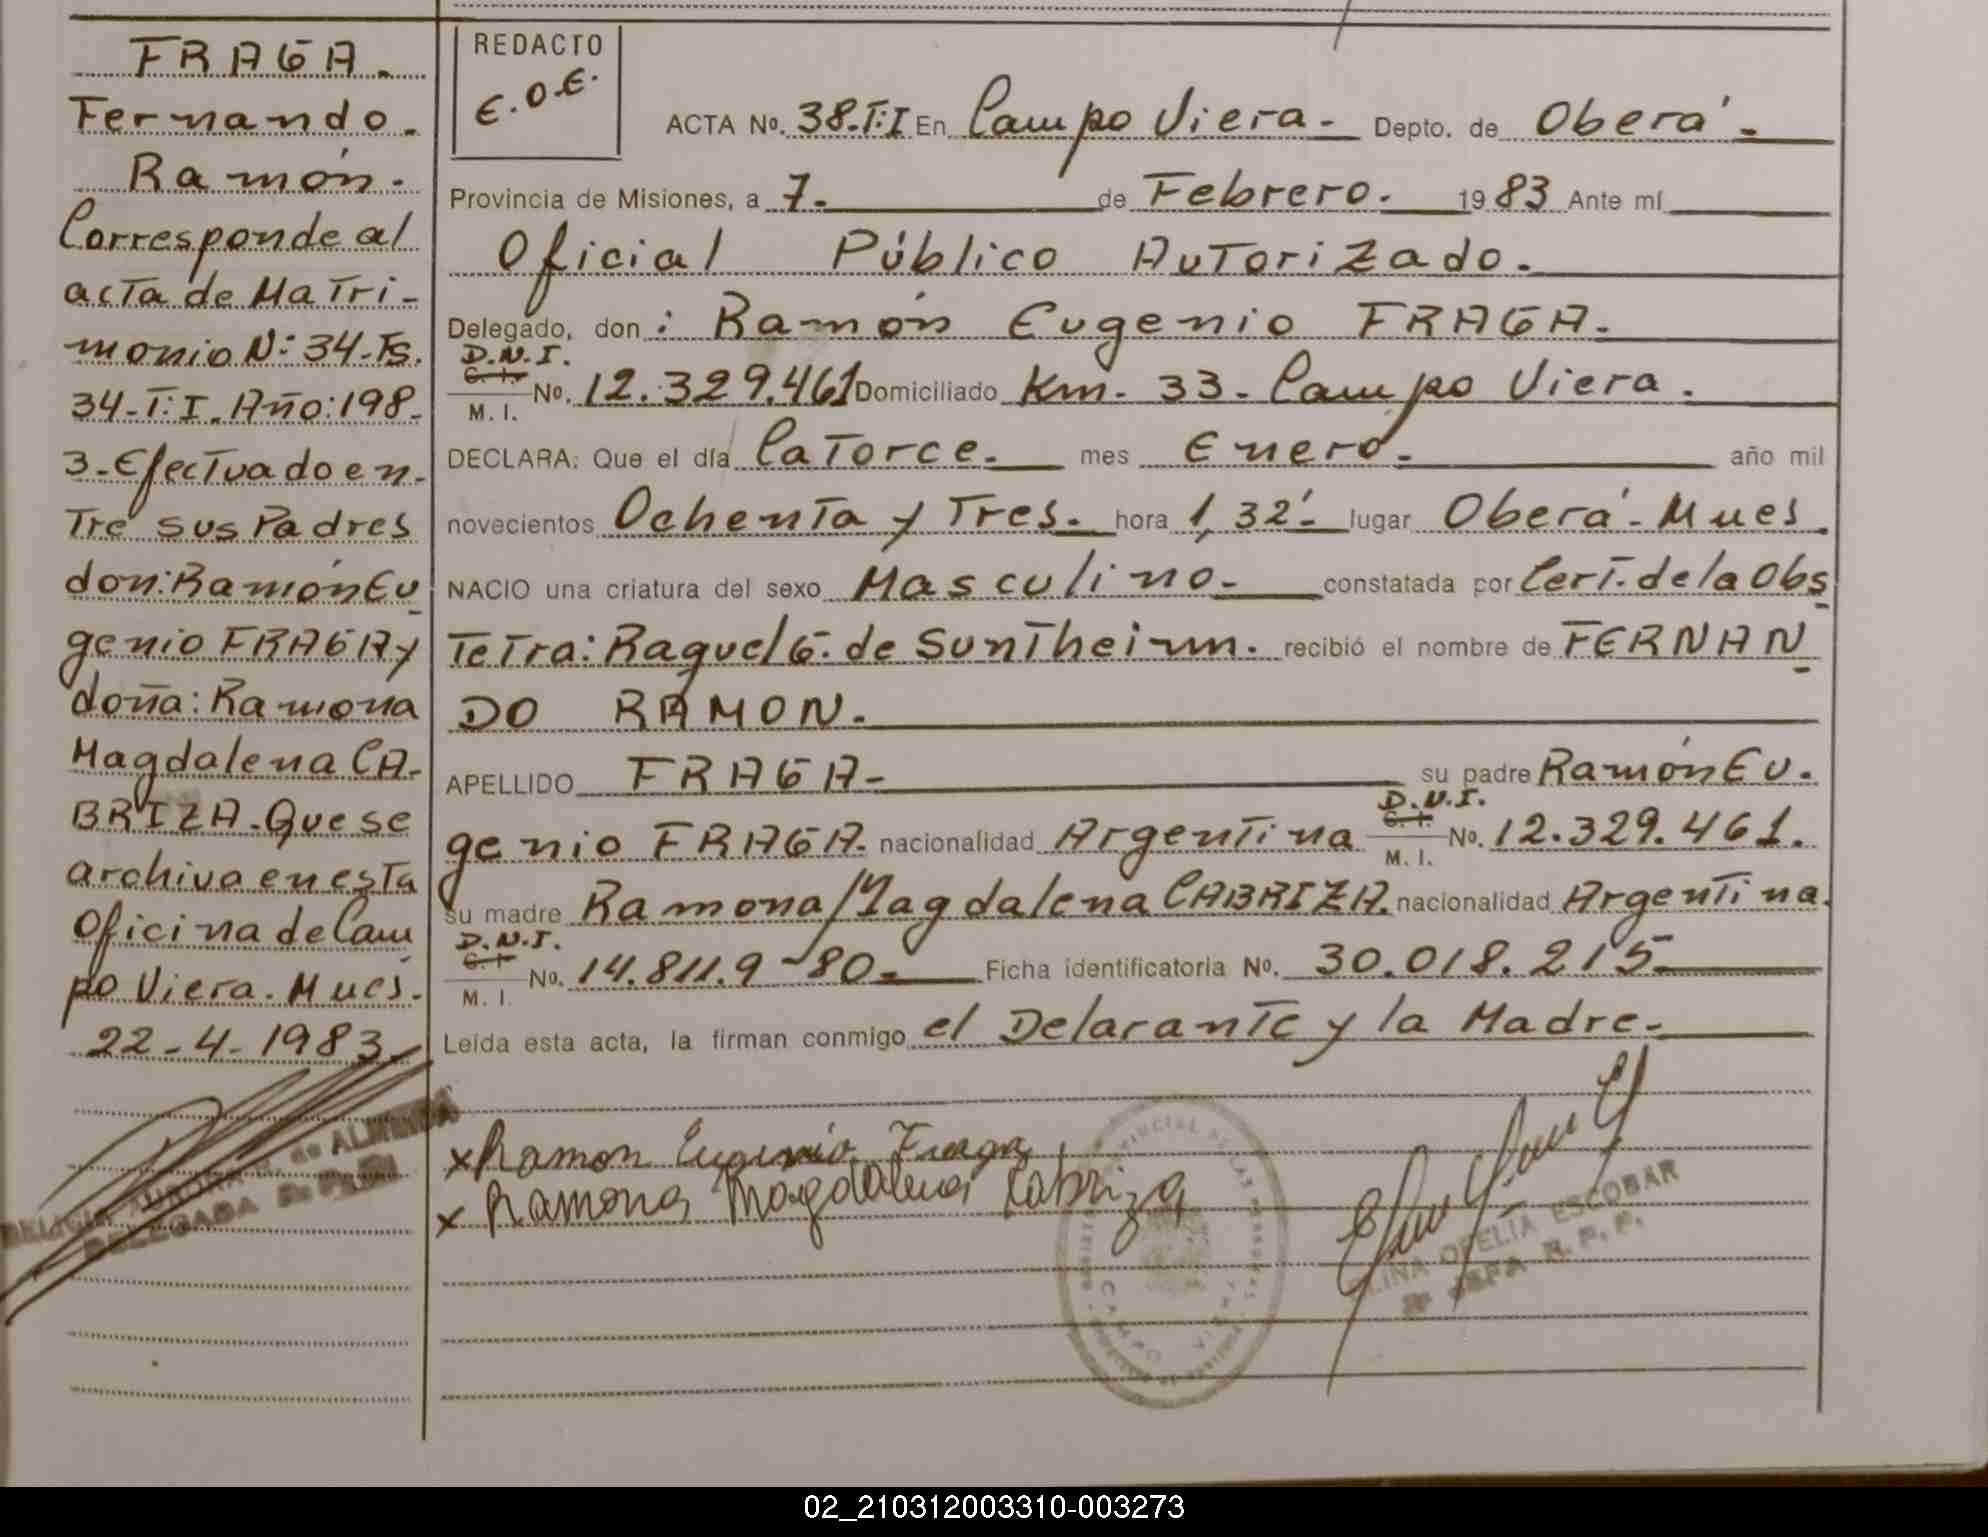 FRAGA.
Fernando.
Ramón.
Corresponde al
acta de Matri-
monio N: 34-Fs.
34-T:I. Año:198-
3-Efectuado en-
tre sus Padres
don: Ramón Eu
genio FRAGA y
doña: Ramona
Magdalena CA-
BRIZA. Que se
archiva en esta
Oficina de Cam
po Viera. Mnes.
22-4-1983.
AURORA de ALMEIDA
DELEGADA
REDACTO
E.O.E.
ACTA Nº. 38-T:I En Campo Viera- Depto. de Oberá-
Provincia de Misiones, a 7. de Febrero. 1983 Ante mí
Oficial Público Autorizado.
Delegado, don: Ramón Eugenio FRAGA.
D.N.I.
C. I.
M. I. No. 12.329.461 Domiciliado Km- 33- Campo Viera.
DECLARA: Que el día Catorce. mes Enero. año mil
novecientos Ochenta y Tres. hora 1,32'- lugar Oberá- Mnes.
NACIO una criatura del sexo Masculino- constatada por Cert. de la Obs
tetra: Raquel G. de Suntheim. recibió el nombre de FERNAN
DO RAMON.
APELLIDO FRAGA- su padre Ramón Eu.
genio FRAGA. nacionalidad Argentina D.N.I. C. I. M. I. No. 12.329.461.
su madre Ramona Magdalena CABRIZA. nacionalidad Argentina.
D.N.I.
C. I.
M. I. No. 14.811.9-80- Ficha identificatoria No. 30.018.215-
Leída esta acta, la firman conmigo el Delarante y la Madre-
x Ramon Eugenio Fraga
x Ramona Magdalena Cabriza
OFELIA ESCOBAR
JEFA R. P. P.
02_210312003310-003273